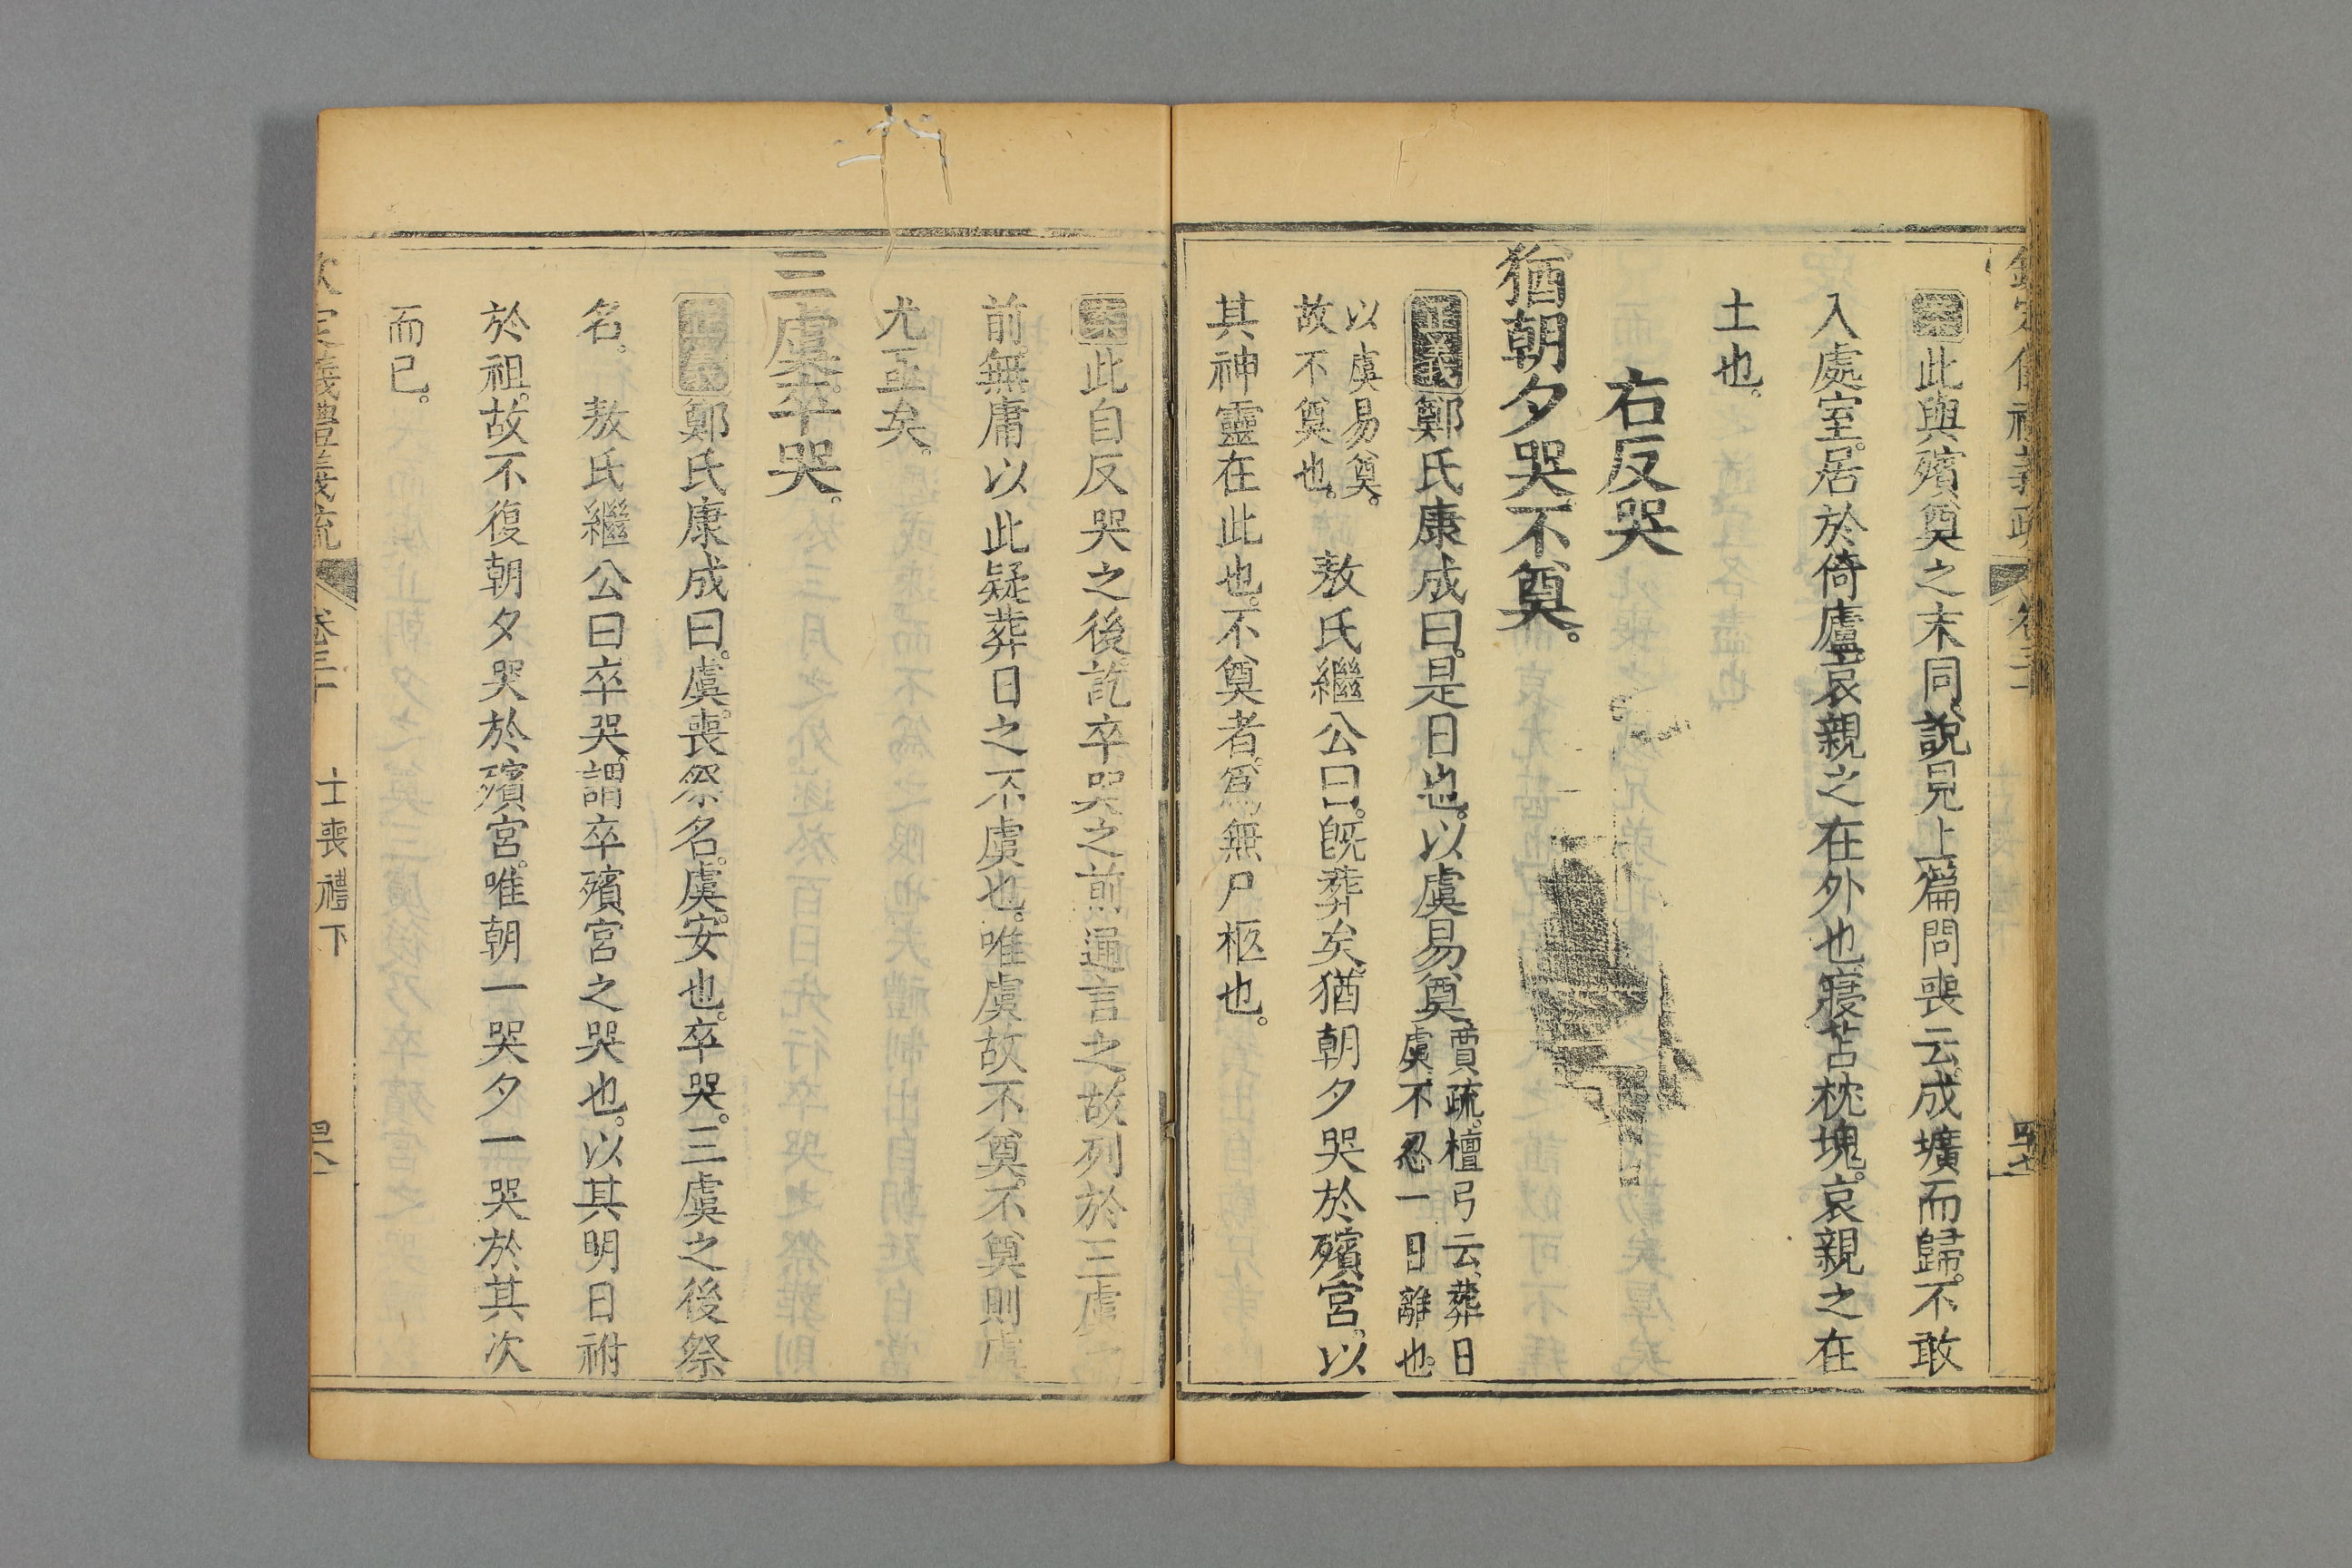 案此與殯奠之末同說見上篇問喪云成壙而歸。不敢
入處室。居於倚廬。哀親之在外也寢苫枕塊。哀親之在
土也。
右反哭
猶朝夕哭不奠。
正義鄭氏康成曰。是日也。以虞易奠賈疏。檀弓云、葬日
虞不忍一日離也。
以虞易奠。
故不奠也。
敖氏繼公曰。旣葬矣。猶朝夕哭於殯宮。以
其神靈在此也。不奠者。爲無尸柩也。
欽定儀禮義疏 卷三十 四七
案此自反哭之後訖卒哭之前通言之。故列於三虞之
前。無庸以此疑葬日之不虞也。唯虞故不奠。不奠則虞
尤亟矣。
三虞。卒哭。
正義鄭氏康成曰。虞。喪祭名。虞。安也。卒哭。三虞之後祭
名。 敖氏繼公曰卒哭、謂卒殯宮之哭也。以其明日祔
於祖。故不復朝夕哭於殯宮。唯朝一哭夕一哭於其次
而已。
欽定儀禮義疏 卷三十 士喪禮下 四八